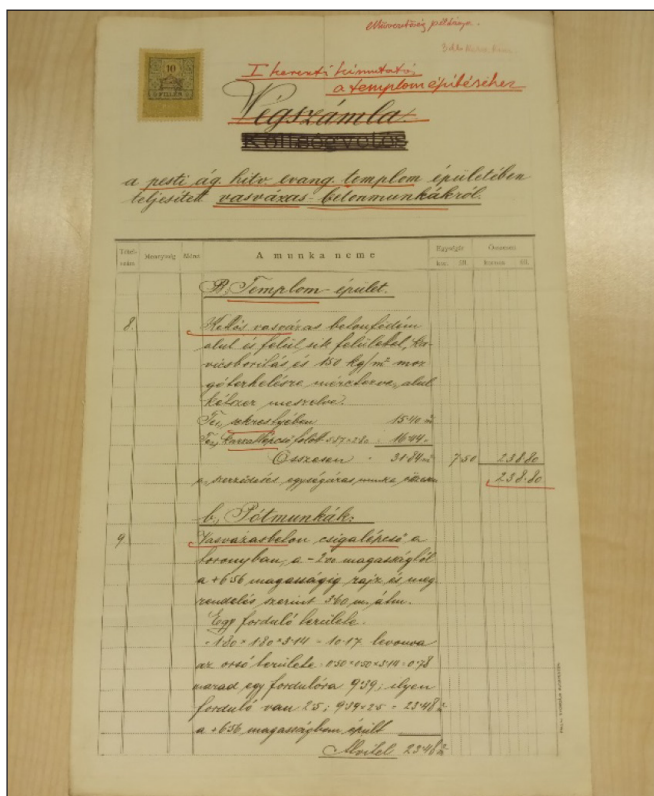 Művezetőség példánya.
10
FILLÉR
I kereseti kimutatás
a templom építéséhez
Végszámla
Költségvetés
a pesti ág. hitv evang. templom épületében
teljesített vasvázas-betonmunkákról.
Tétel-szám Mennyiség Méret A munka neme Egységár Összesen
kor. fill. korona fill.
B, Templom-épület.
8. vasvázas betonfödém
alul és felül sík felülettel, ka-
vicsborítás és 150 kg/m² moz-
góterhelésre méretezve, alul
kétszer meszelve.
sekrestyében 15·40 m
lépcső fölött 5·87×2·80 16·44
Összesen 31·84 m² 7 50 238 80
a szerződéses egységáras munka 238·80
b, Pótmunkák:
9. Vasvázasbeton csigalépcső a
toronyban, a -2·00 magasságtól
a +6·56 magasságig rajz és meg
rendelés szerint 3·60 m. átm.
Egy forduló területe.
1·80 × 1·80 × 3·14 = 10·17 levonva
az orsó területe 0·50 × 0·50 × 3·14 = 0·78
marad egy fordulóra 9·39; ilyen
forduló van 2·5; 9·39 × 2·5 = 23·48 m²
a +6·56 magasságban épült
Átvitel 23·48 m²